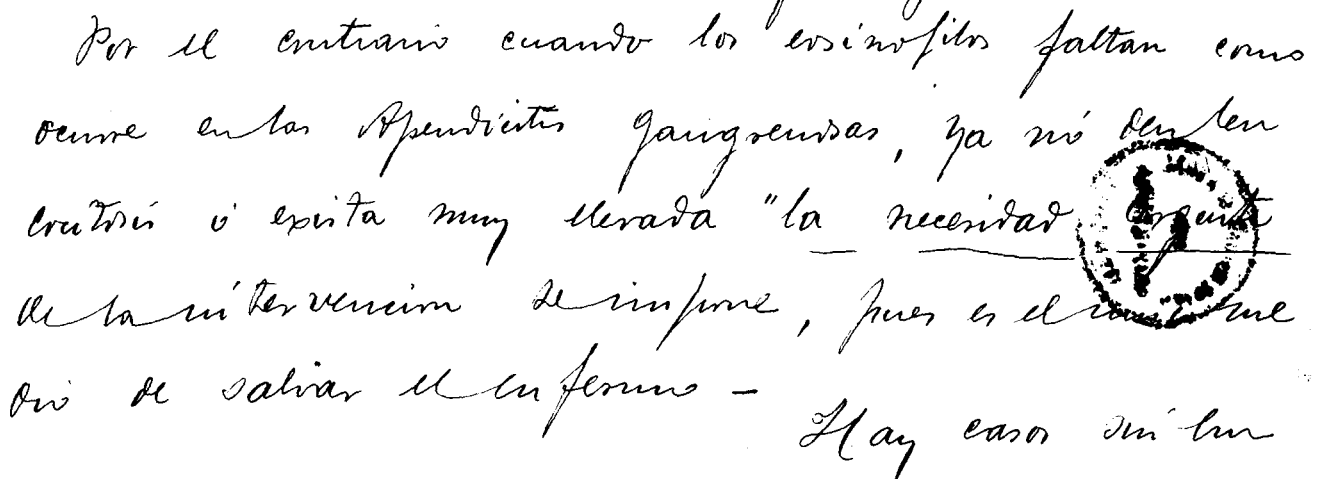 Por el contrario cuando los eosinofilos faltan como
ocurre en las Apendicitis gangrenosas, ya nó den leu
cocitosis ó exista muy elevada "la necesidad urgente
de la intervencion se impone, pues es el unico me
dio de salvar el enfermo -
Hay casos sin em